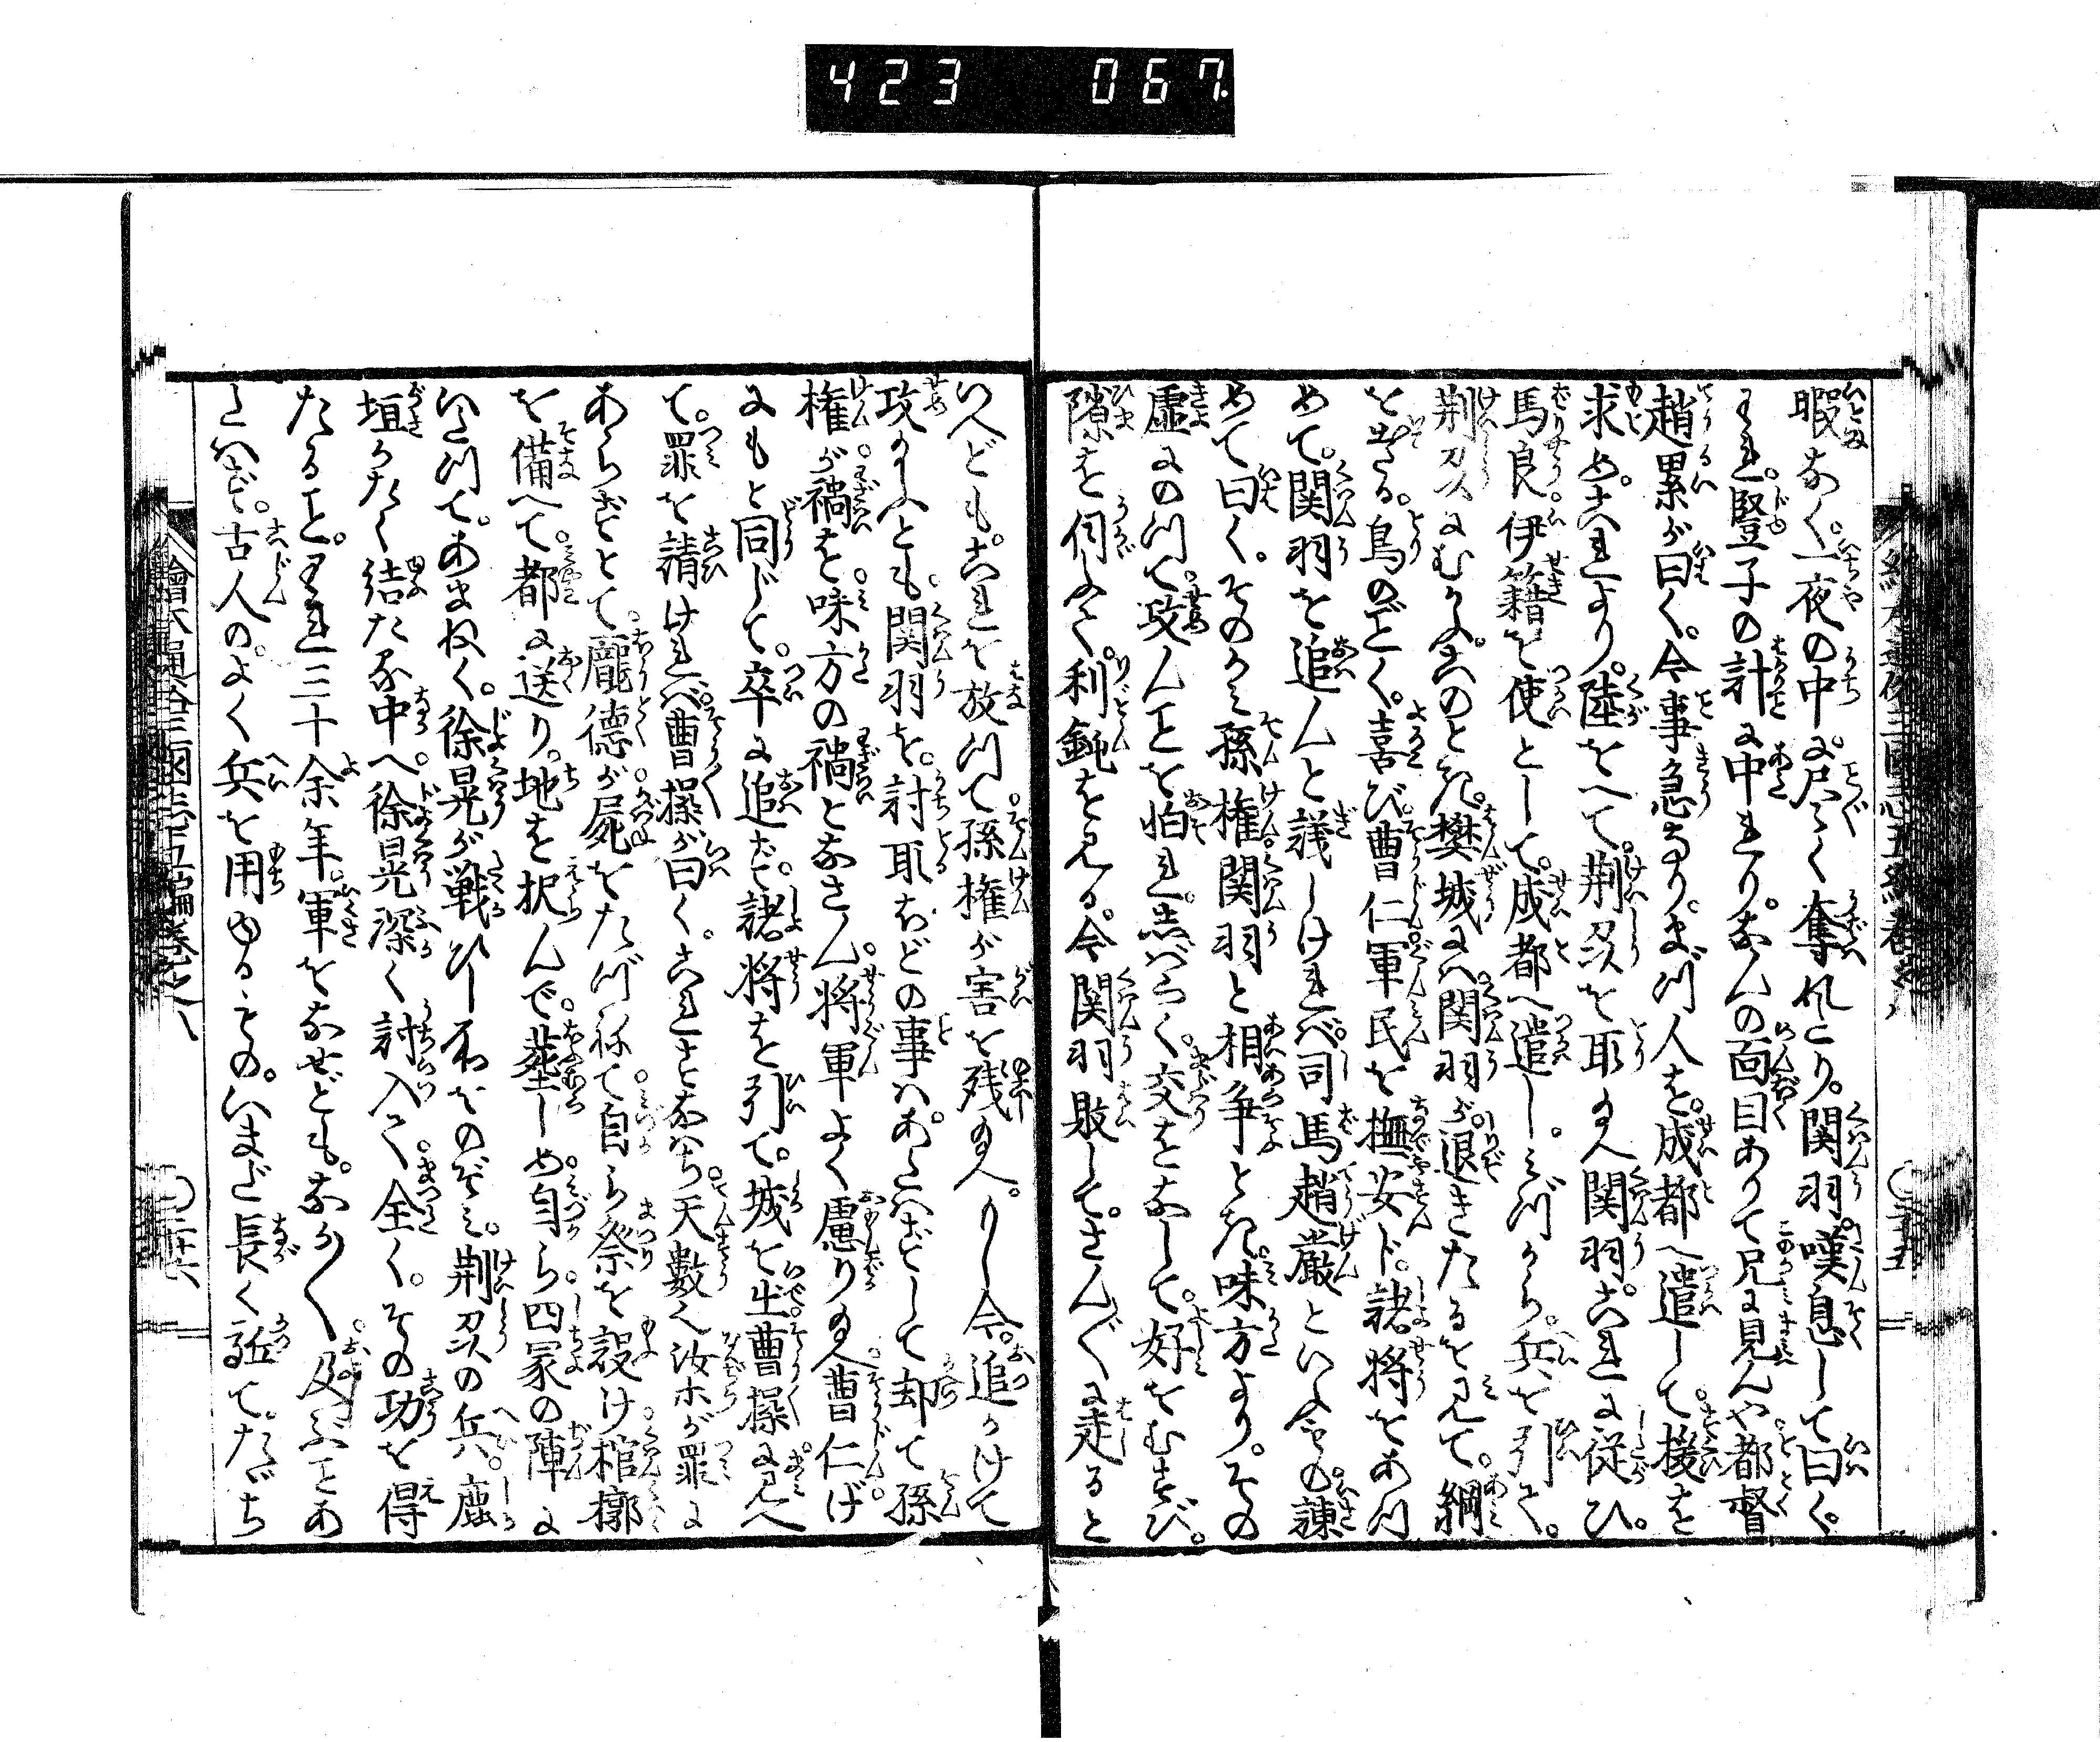 423 067
暇なく。一夜の中に尽く奪れたり。関羽嘆息して曰く。
われ豎子の計に中れり。なんの面目ありて兄に見んや都督
趙累が曰く。今事急なり。まづ人を成都へ遣して援を
求め。これより。陸をへて。荆州を取玉へ関羽。これに従ひ。
馬良伊籍を使として。成都へ遣し。みづから。兵を引て。
荆州にむかふ。このとき。樊城には関羽が退きたるを見て。網
を出る。鳥のごとく。喜び曹仁軍民を撫安ド。諸将をあつ
めて。関羽を追んと議しければ。司馬趙厳といふもの諫
めて曰く。そのかみ孫権関羽と相争とき。味方より。その
虚にのつて。攻んことを怕れ。しばらく。交をなして。好をむすび。
隙を伺ふて。利鈍を見る。今関羽敗して。さんざんに走ると
いへども。これを放つて孫権が害を残玉へ。もし今。追かけて
攻玉ふとも。関羽を。討取などの事はあたはずして却て孫
権が禍を味方の禍となさん。将軍よく慮り玉へ曹仁げ
にもと同じて。卒に追ず。諸将を引て。城を出。曹操に見へ
て。罪を請ければ。曹操が曰く。これすなはち天數也汝ホが罪に
あらずとて。龐德が屍をたづねて自ら祭を設け棺槨
を備へて。都に送り。地を択んで。葬しめ自ら。四冢の陣に
いたつて。あまねく。徐晃が戦ひし所をのぞみ。荆州の兵。鹿
垣かたく結たる中へ。徐晃深く討入て。全く。その功を得
たること。われ三十余年。軍をなせども。なか〱及ふことあ
たはず。古人の。よく兵を用ゆるもの。いまだ長く駈て。たゞち
繪本通俗三國志五編巻之八
二十五
繪本通俗三國志五編巻之八
二十六